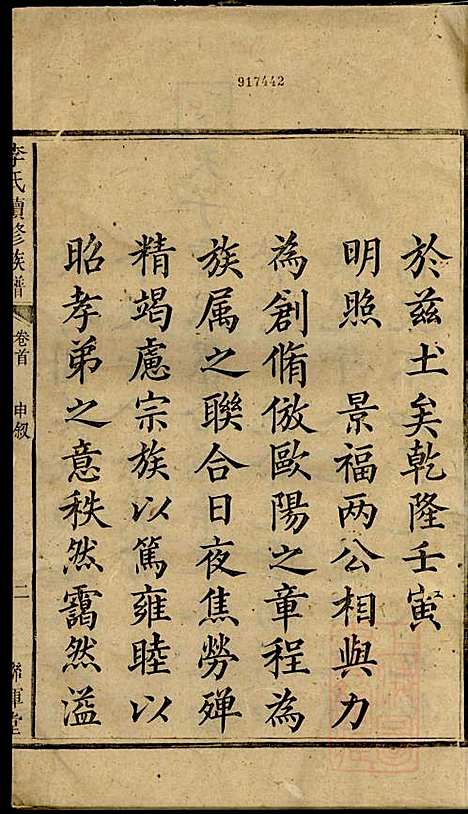 917442
於茲土矣乾隆壬寅
明照 景福两公相與力
為創脩倣歐陽之章程為
族属之聯合日夜焦勞殫
精竭慮宗族以篤雍睦以
昭孝弟之意秩然靄然溢
李氏續修族譜 卷首 申叙 二